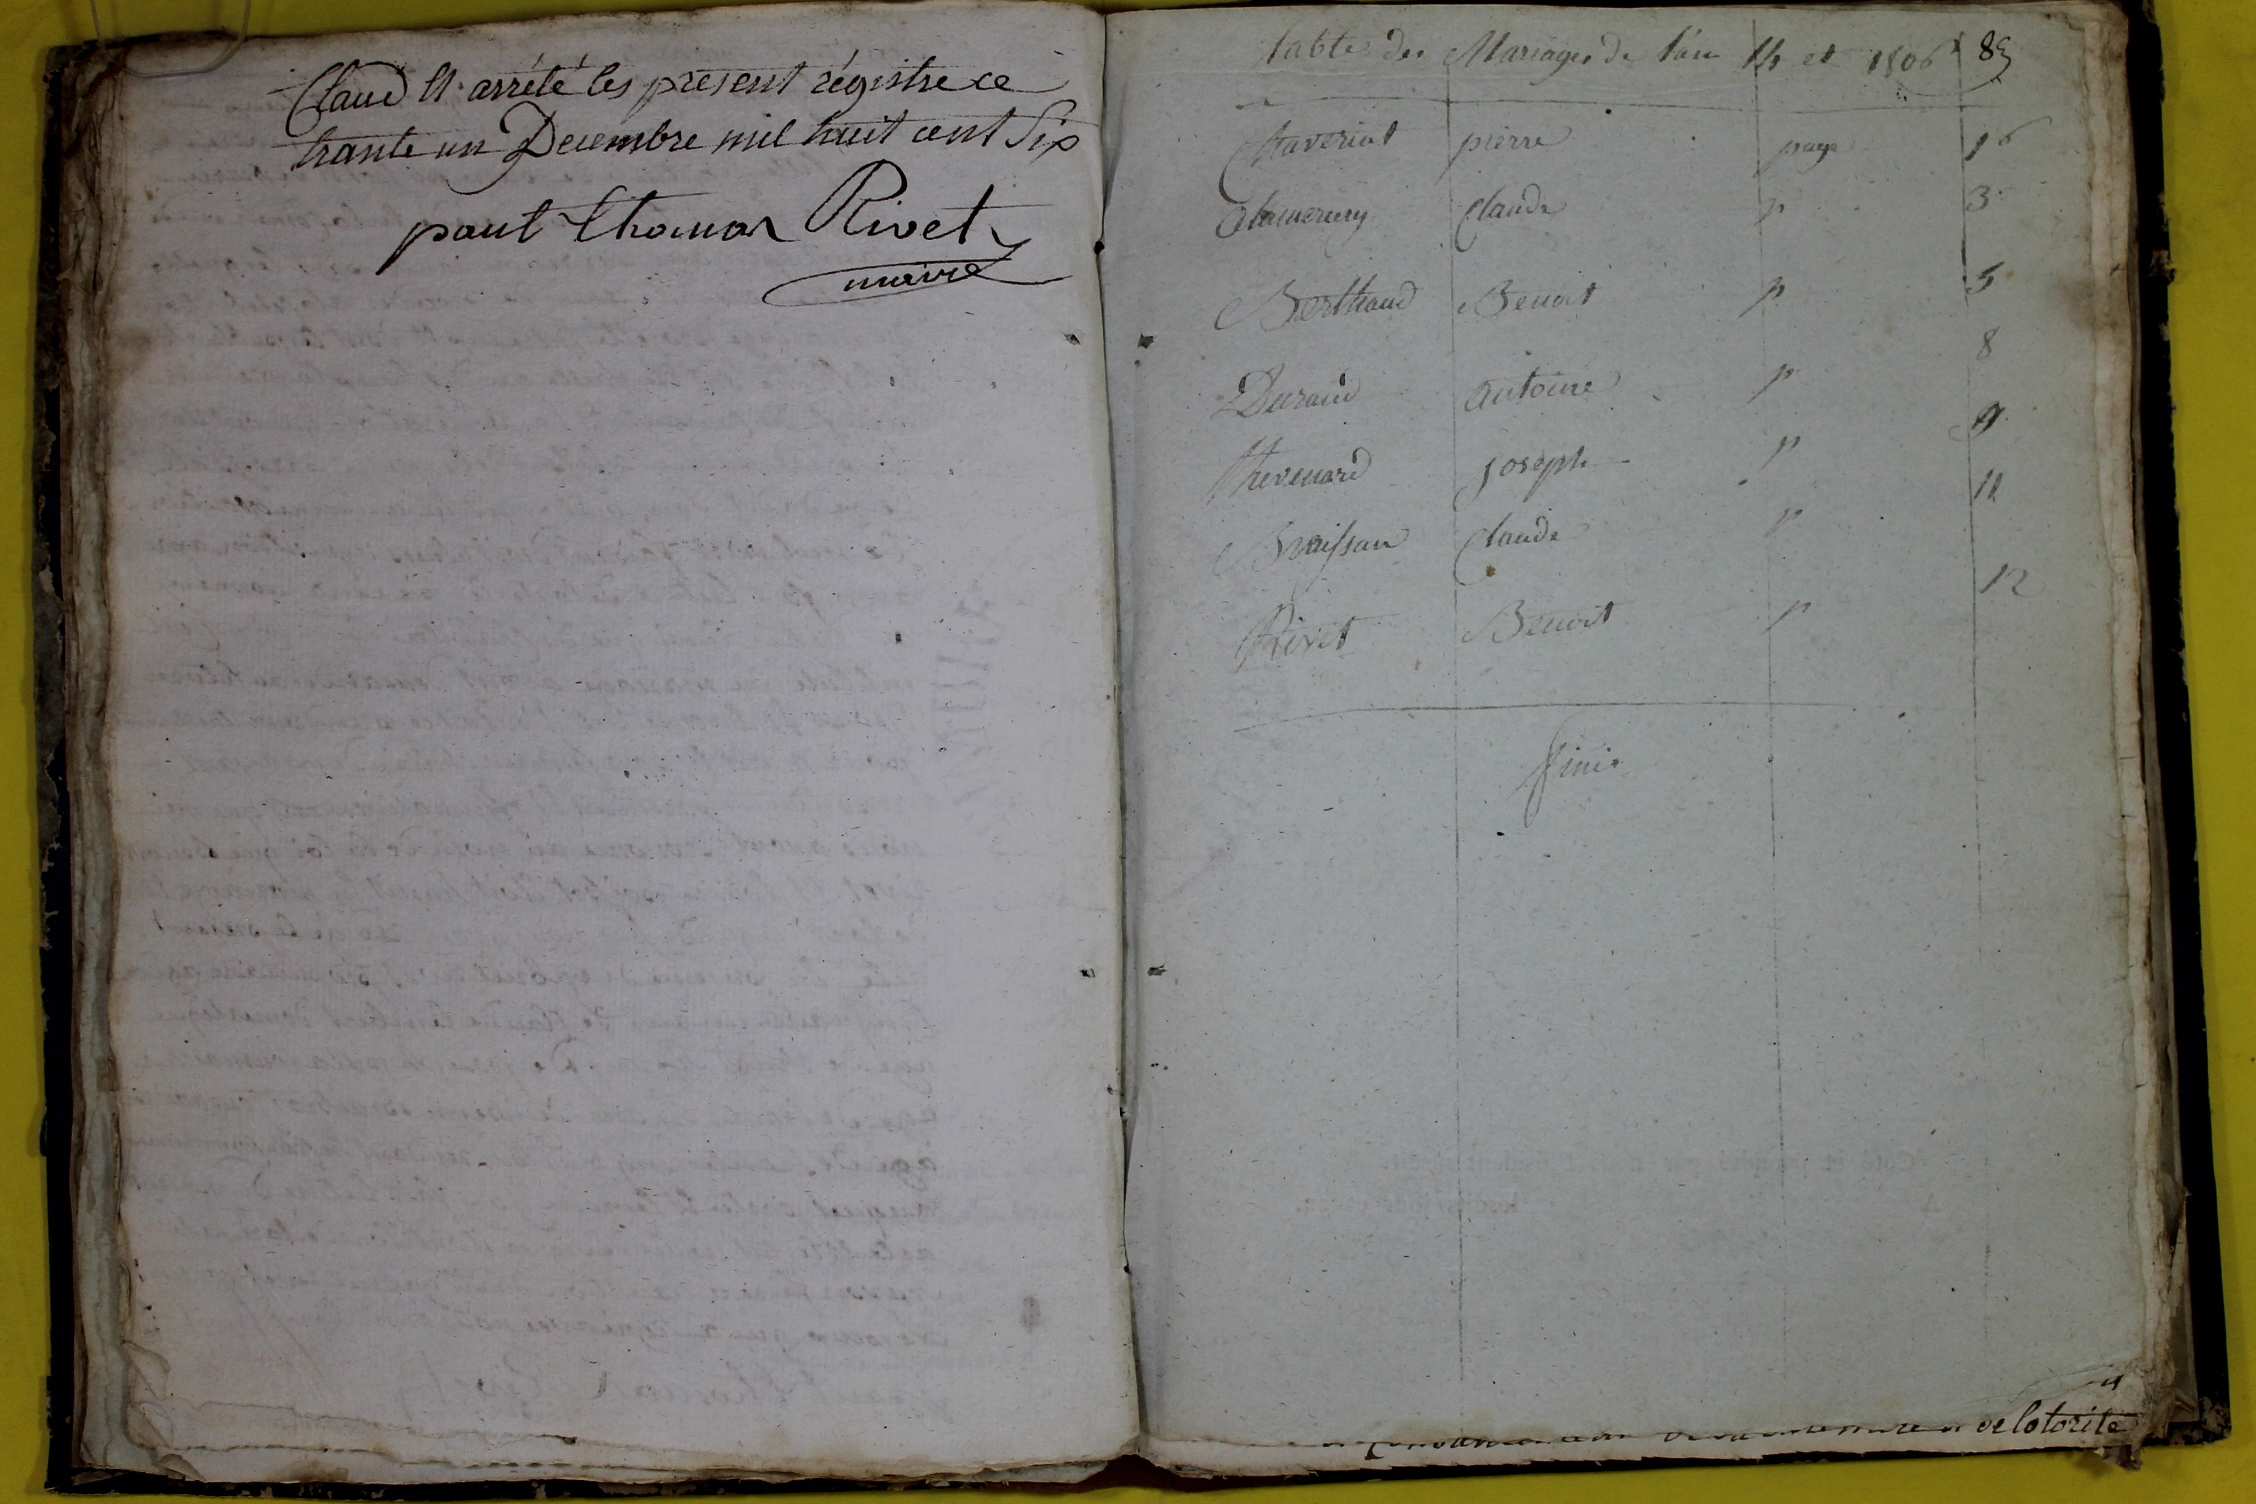 Claud et arrété les présent régistre ce
trante un Decembre mil huit cent Six
paul thomas Rivet
maire
table des Mariages de l'an 14 et 1806 85
Chaveriat pierre page 1
Claude p 3
Berthaud Benoit p 5
Durand antoine p 8
thevenard joseph p 9
Braissan Claude p 11
Rivet Benoit p 12
finis
de lotorité